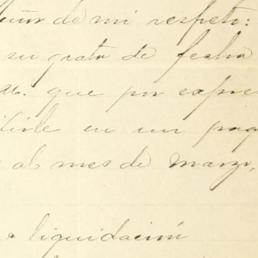 de mi respeto:
su grata de fecha
que por expre
en un pag
al mes de Marzo,
liquidación